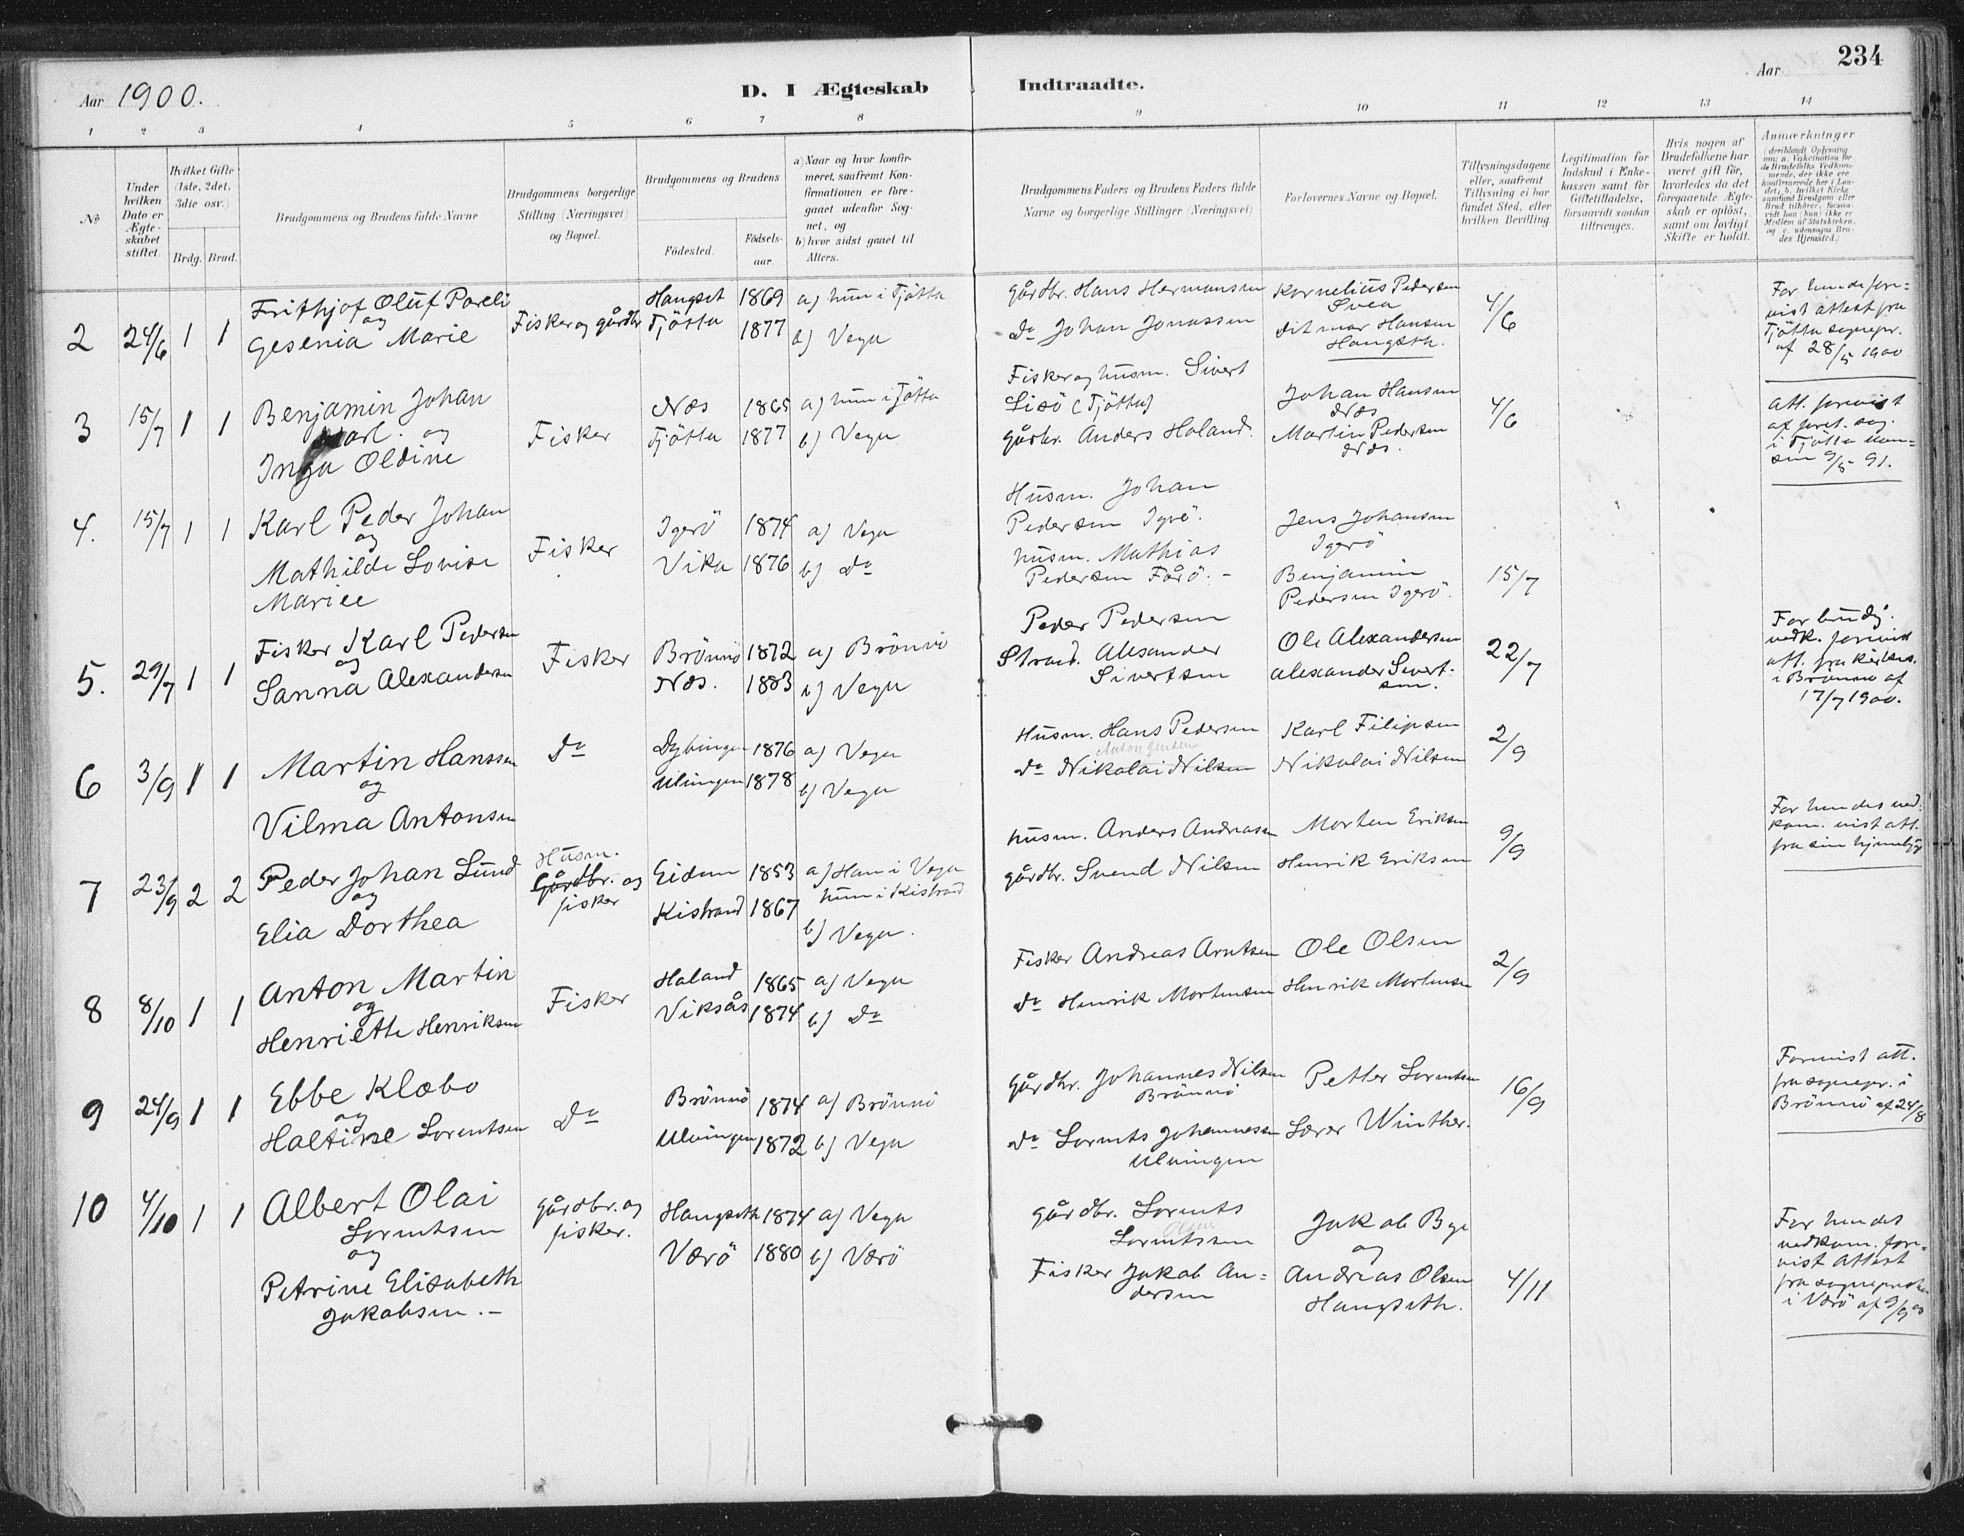 234
Aar 1900.
D. I Ægteskab Indtraadte.
Aar
1 2 3 4 5 6 7 8 9 10 11 12 13 14
No
Under hvilken Dato er Ægteskabet stiftet.
Hvilket Gifte (1ste, 2det, 3die osv.)
Brdg. Brud.
Brudgommens og Brudens fulde Navne
Brudgommens borgerlige Stilling (Næringsvei) og Bopæl.
Brudgommens og Brudens
Fødested.
Fødselsaar.
a) Naar og hvor konfirmeret, saafremt Konfirmationen er foregaaet udenfor Sognet, og
b) hvor sidst gaaet til Alters.
Brudgommens Faders og Brudens Faders fulde Navne og borgerlige Stillinger (Næringsvei)
Forlovernes Navne og Bopæl.
Tillysningsdagene eller, saafremt Tillysning ei har fundet Sted, efter hvilken Bevilling.
Legitimation for Indskud i Enkekassen samt for Giftetilladelse, forsaavidt saadan tiltrænges.
Hvis nogen af Brudefolkene har været gift før, hvorledes da det foregaaende Ægteskab er opløst, samt om lovligt Skifte er holdt.
Anmærkninger
2 24/6 1 1 Frithjof Oluf Poreli
og
Gesenia Marie
Fisker og gårdbr
Hangset 1869 a) hun i Tjötta
Tjötta 1877 b) Vega
gårdbr. Hans Hermansen
Do Johan Jonassen
Kornelius Pedersen
Svea
Ditmar Hansen
Hangseth.
4/6
For hende fore=
vist attest fra
Tjötta sognepr.
af 28/5 1900
3 15/7 1 1 Benjamin Johan
Karl. og
Inga Oldine
Fisker
Næs 1865 a) hun i Tjötta
Tjötta 1877 b) Vega
Fisker og husm. Sivert
Lisö (Tjötta)
gårbr. Anders Holand.
Johan Hansen
Næs
Martin Pedersen
Næs.
4/6
Att. forevist
i Tjötta
9/5 91.
4. 15/7 1 1 Karl Peder Johan
og
Mathilde Lovise
Mariee
Fisker
Igerö 1874 a) Vega
Vika 1876 b) Do
Husm. Johan
Pedersen Igrö.
husm. Mathias
Pedersen Fårö. -
Jens Johansen
Igerö
Benjamin
Pedersen Igerö.
15/7
5. 29/7 1 1 Fisker Karl Pedersen
og
Sanna Alexandersen
Fisker
Brönnö 1872 a) Brönnö
Næs. 1883 b) Vega
Peder Pedersen
Strand. Alexander
Sivertsen
Ole Alexandersen
Alexander Sivert-
sen.
22/7
For brudg.
vedk. forevist
att. fra
i Brönnö af
17/7 1900.
6 3/9 1 1 Martin Hanssen
og
Vilma Antonsen
Do
Dybingen 1876 a) Vega
Ulvingen 1878 b) Vega
Husm. Hans Pedersen
Anton Jensen
Do Nikolai Nilsen
Karl Filipsen
Nikolai Nilsen
2/9
7 23/9 2 2 Peder Johan Lund
og
Elia Dorthea
Husm.
Gårdbr. og
fisker
Eidem 1853 a) Han i Vega
hun i Kistrand
Kistrand 1867
b) Vega.
husm. Anders Andreasen
gårdbr. Svend Nilsen
Morten Eriksen
Henrik Eriksen
9/9
For hendes ved
kom. vist att.
fra sin
8 8/10 1 1 Anton Martin
og
Henriette Henriksen
Fisker
Holand 1865 a) Vega
Viksås 1874 b) Do
Fisker Andreas Arntsen
Do Henrik Mortensen
Ole Olsen
Henrik Mortensen
2/9
9 24/9 1 1 Ebbe Klæbo
og
Haltine Lorentsen
Do
Brönnö 1874 a) Brönnö
Ulvingen 1872 b) Vega
Gårdbr. Johannes Nilsen
Brönnö
Do Lorents Johannessen
Ulvingen
Petter Lorentsen
Lærer Winther.
16/9
Forevist att.
fra sognepr. i
Brönnö af 24/8
10 4/10 1 1 Albert Olai
Lorentsen
og
Petrine Elisabeth
Jakobsen. -
gårdbr. og
fisker.
Hangseth 1874 a) Vega
Værö 1880 b) Værö
gårdbr. Lorents
Olsen
Lorentssen
Fisker Jakob An=
dersen
Jakob Bye
og
Andreas Olsen
Hangseth.
4/11
For hendes
vedkom. fore-
vist attest
fra sognepresten
i Værö af 9/9 00